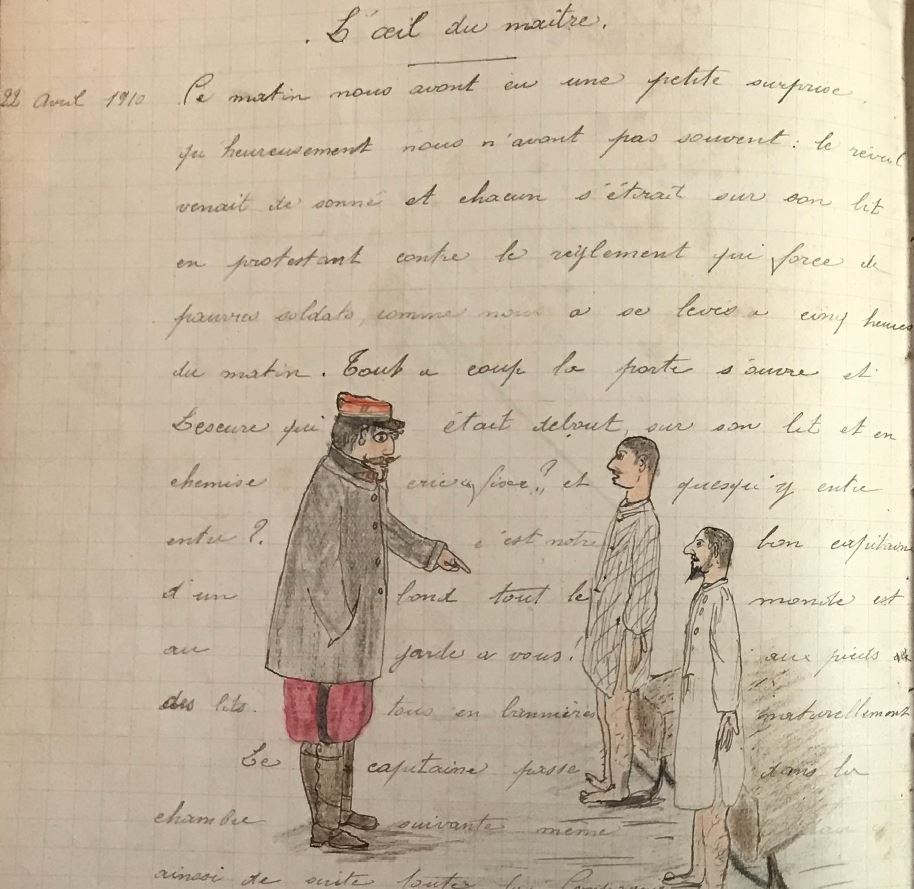 L'œil du maître.
22 Avril 1910 Ce matin nous avont eu une petite surprise
qu'heureusement nous n'avont pas souvent : le réveil
venait de sonné et chacun s'étirait sur son lit
en protestant contre le règlement qui force de
pauvres soldats, comme nous a se lever a cinq heures
du matin. Tout a coup la porte s'ouvre et
Lescure qui était debout, sur son lit et en
chemise crie fixe ? et quesqu'y entre
entre ?. c'est notre bon capitaine
d'un bond tout le monde est
au garde a vous. aux pieds
des lits. tous en bannières naturellement
Le capitaine passe dans la
chambre suivante même
ainsi de suite toute la Compagnie